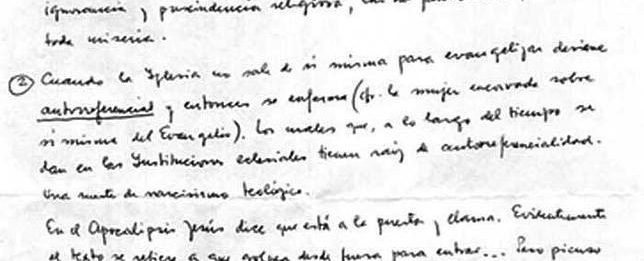 ignorancia y prescindencia religiosa,
toda miseria.
② Cuando la Iglesia no sale de sí misma para evangelizar deviene
autorreferencial y entonces se enferma (cfr. la mujer encorvada sobre
sí misma del Evangelio). Los males que, a lo largo del tiempo se
dan en las Instituciones eclesiales tienen raíz de autorreferencialidad.
Una suerte de narcisismo teológico.
En el Apocalipsis Jesús dice que está a la puerta y llama. Evidentemente
el texto se refiere a que golpea desde fuera para entrar... Pero pienso